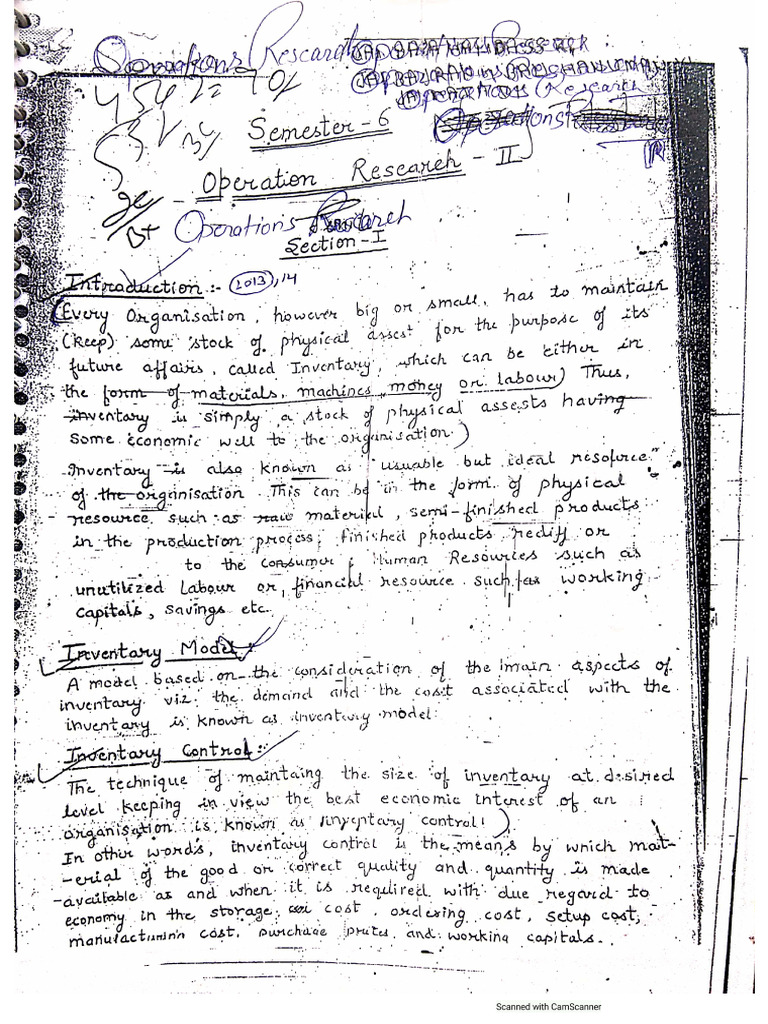 Operations Research
Operations Research
Semester - 6
Operation Research - II
Operations Research
Section - I
Introduction :- (2013), 14
(Every Organisation, however big or small, has to maintain
(Keep) some stock of physical asset for the purpose of its
future affairs, called Inventary, which can be either in
the form of materials, machines, money or labour) Thus,
inventary is simply a stock of physical assests having
some economic well to the organisation.)
Inventary is also known as "usuable but ideal resource"
of the organisation This can be in the form of physical
resource such as raw material, semi-finished products
in the production process, finished products rediff or
to the consumer, Human Resources such as
unutilized Labour or, financial resource such as working
capitals, savings etc.
Inventary Model :-
A model based on the consideration of the main aspects of
inventary viz. the demand and the cost associated with the
inventary is known as inventary model.
Inventary Control :-
The technique of maintaing the size of inventary at desired
level keeping in view the best economic interest of an
organisation is known as inventary control.)
In other words, inventary control is the means by which mat-
-erial of the good or correct quality and quantity is made
-available as and when it is required with due regard to
economy in the storage cost, ordering cost, setup cost,
manufacturinn cost, purchase prices and working capitals..
Scanned with CamScanner